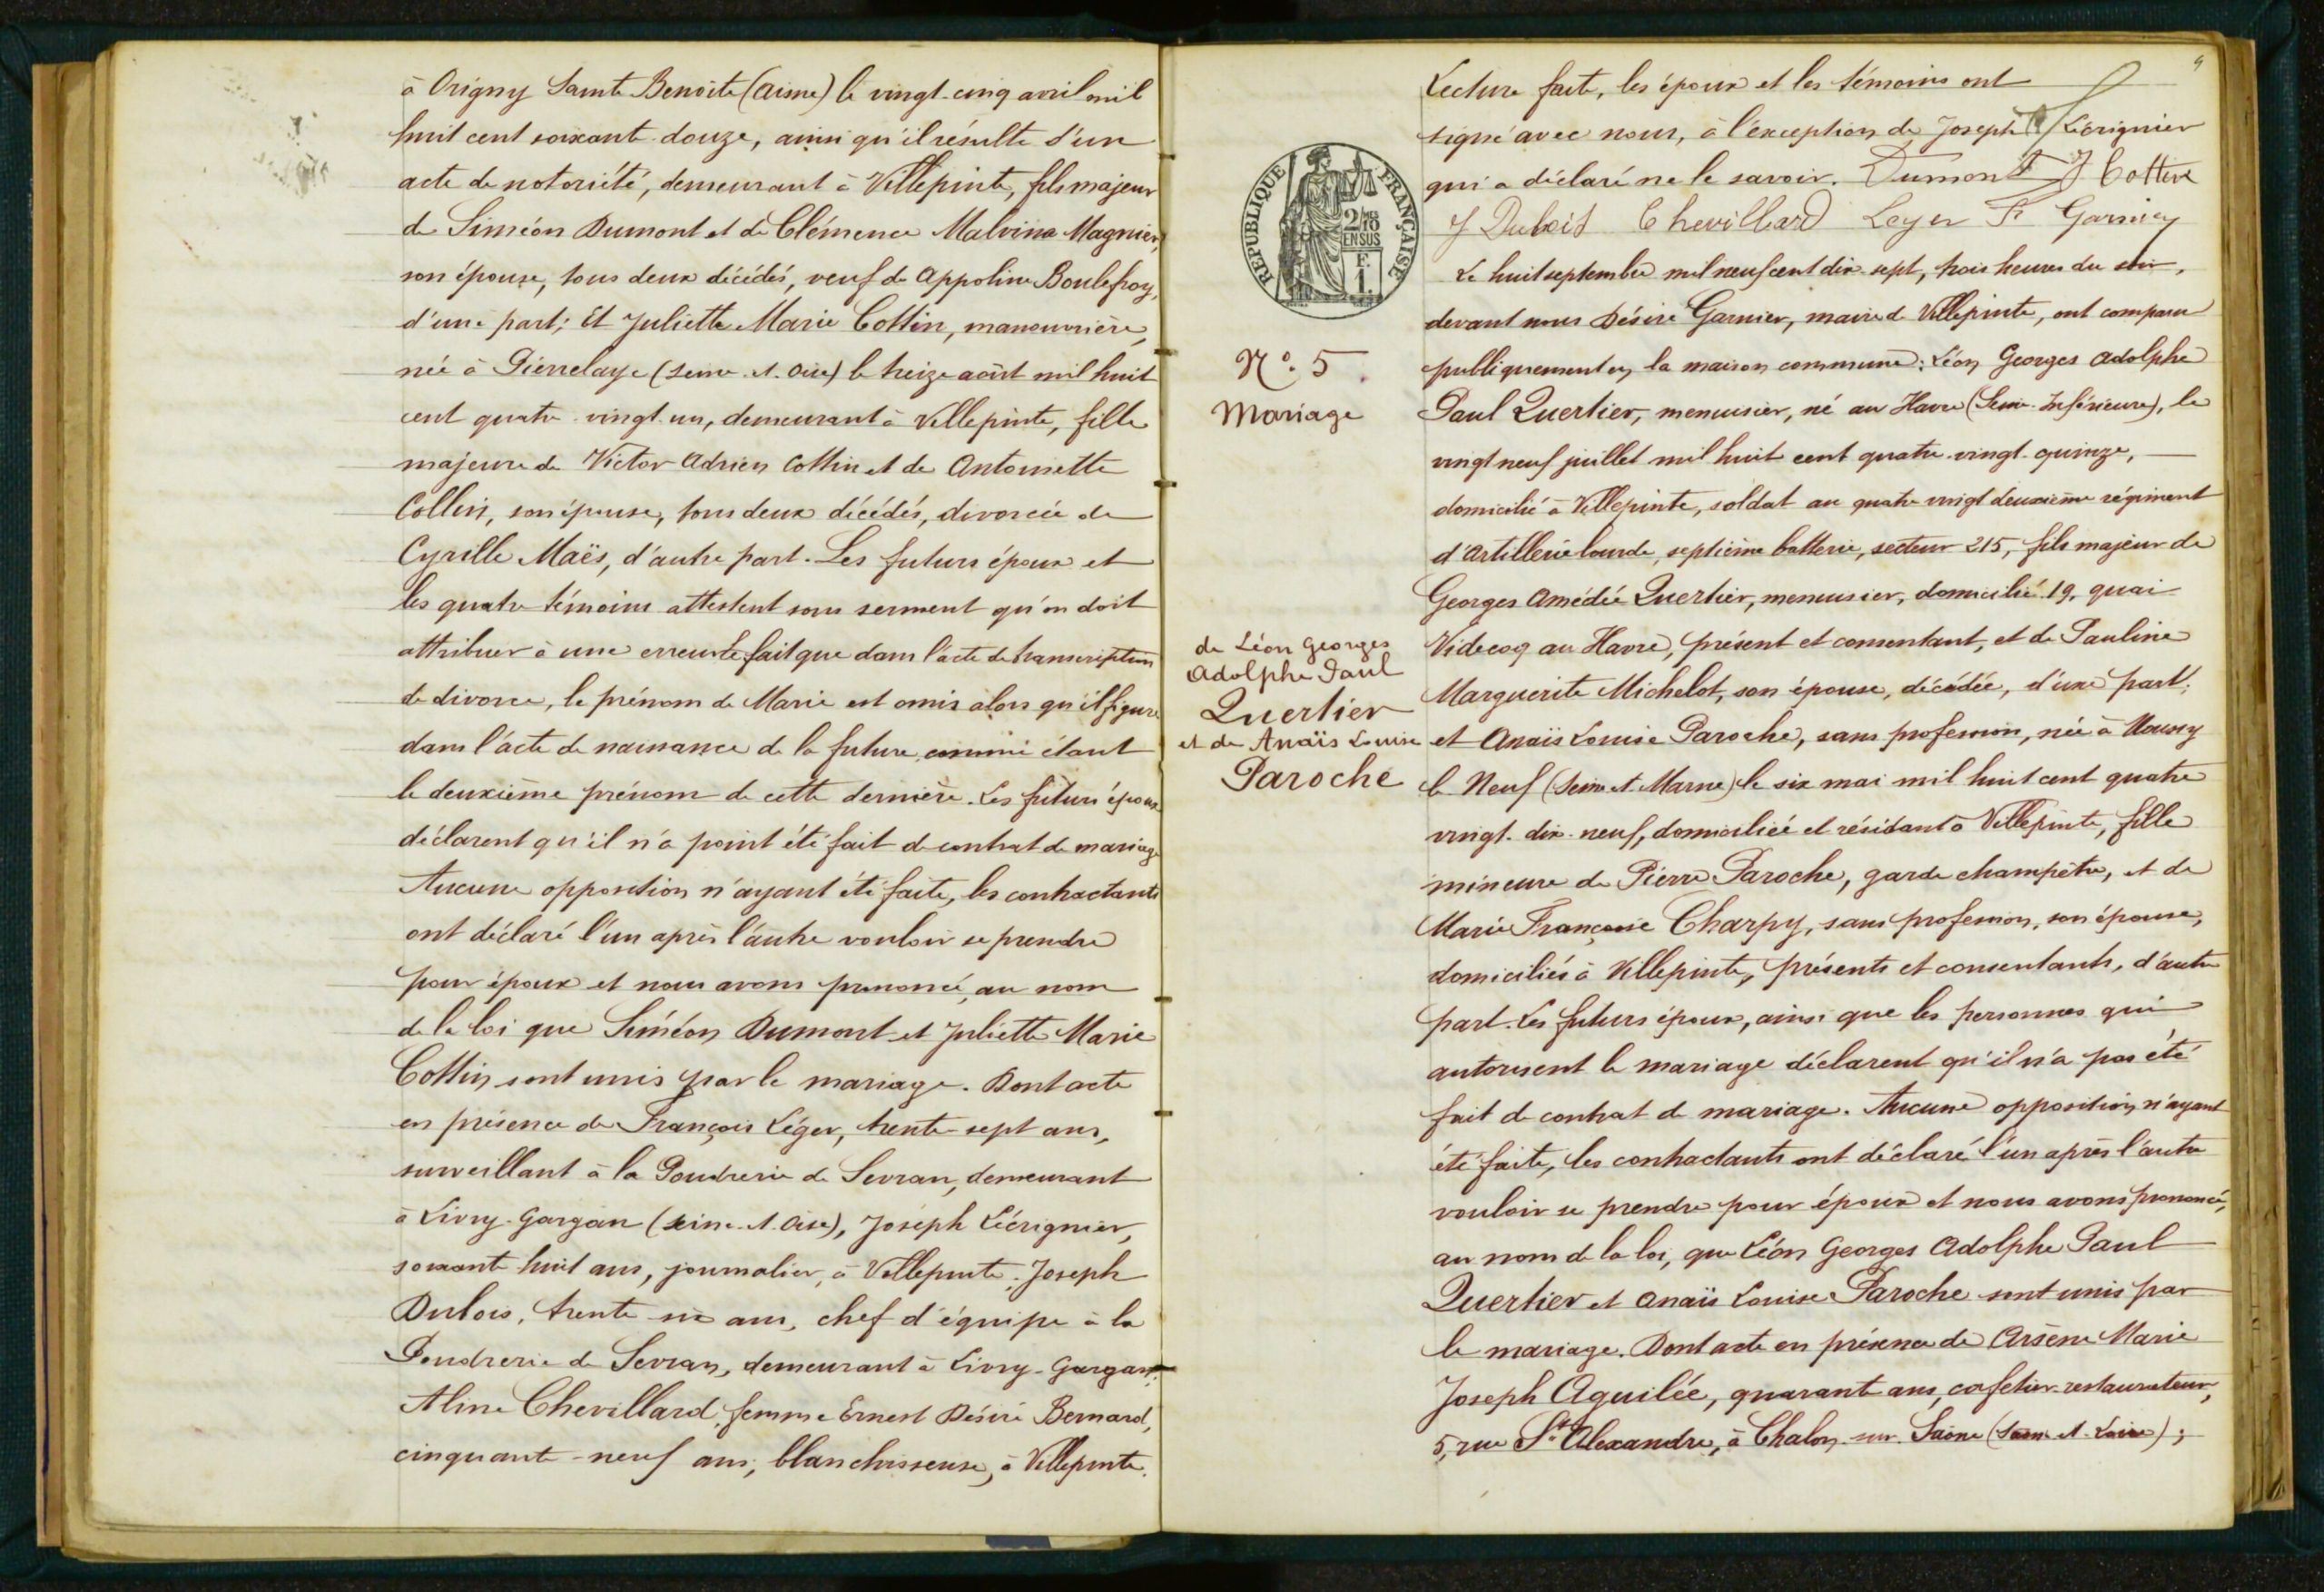 à Origny Sainte Benoite (Aisne) le vingt-cinq avril mil
huit cent soixante-douze, ainsi qu'il résulte d'un
acte de notoriété, demeurant à Villepinte, fils majeur
de Siméon Dumont et de Clémence Malvina Magnier,
son épouse, tous deux décédés, veuf de Appoline Boulefroy,
d'une part; Et Juliette Marie Cottin, manouvrière,
née à Pierrelaye (Seine-et-Oise) le treize août mil huit
cent quatre-vingt-un, demeurant à Villepinte, fille
majeure de Victor Adrien Cottin et de Antoinette
Collin, son épouse, tous deux décédés, divorcée de
Cyrille Maës, d'autre part. Les futurs époux et
les quatre témoins attestent sous serment qu'on doit
attribuer à une erreur le fait que dans l'acte de transcription
de divorce, le prénom de Marie est omis alors qu'il figure
dans l'acte de naissance de la future comme étant
le deuxième prénom de cette dernière. Les futurs époux
déclarent qu'il n'a point été fait de contrat de mariage
Aucune opposition n'ayant été faite, les contractants
ont déclaré l'un après l'autre vouloir se prendre
pour époux et nous avons prononcé, au nom
de la loi que Siméon Dumont et Juliette Marie
Cottin sont unis par le mariage. Dont acte
en présence de François Léger, trente-sept ans,
surveillant à la Poudrerie de Sevran, demeurant
à Livry-Gargan (Seine-et-Oise), Joseph Lécrignier,
soixante huit ans, journalier, à Villepinte; Joseph
Dubois, trente six ans, chef d'équipe à la
Poudrerie de Sevran, demeurant à Livry-Gargan;
Aline Chevillard, femme Ernest Désiré Bernard,
cinquante-neuf ans, blanchisseuse, à Villepinte.
Lecture faite, les époux et les témoins ont
signé avec nous, à l'exception de Joseph Lécrignier
qui a déclaré ne le savoir. Dumont J Cottin
J Dubois Chevillard Leger F Garnier
REPUBLIQUE FRANÇAISE
2/10
EN SUS
F.
1.
N° 5
Mariage
de Léon Georges
Adolphe Paul
Quertier
et de Anaïs Louise
Paroche
Le huit septembre mil neuf cent dix-sept, trois heures du soir,
devant nous Désiré Garnier, maire de Villepinte, ont comparu
publiquement en la maison commune: Léon Georges Adolphe
Paul Quertier, menuisier, né au Havre (Seine-Inférieure), le
vingt neuf juillet mil huit cent quatre-vingt-quinze,
domicilié à Villepinte, soldat au quatre vingt deuxième régiment
d'Artillerie lourde, septième batterie, secteur 215, fils majeur de
Georges Amédée Quertier, menuisier, domicilié 19, quai
Videcoq au Havre, présent et consentant, et de Pauline
Marguerite Michelot, son épouse, décédée, d'une part;
et Anaïs Louise Paroche, sans profession, née à Moussy
le Neuf (Seine-et-Marne) le six mai mil huit cent quatre
vingt-dix-neuf, domiciliée et résidant à Villepinte, fille
mineure de Pierre Paroche, garde champêtre, et de
Marie Françoise Charpy, sans profession, son épouse,
domiciliés à Villepinte, présents et consentants, d'autre
part. Les futurs époux, ainsi que les personnes qui
autorisent le mariage déclarent qu'il n'a pas été
fait de contrat de mariage. Aucune opposition n'ayant
été faite, les contractants ont déclaré l'un après l'autre
vouloir se prendre pour époux et nous avons prononcé,
au nom de la loi, que Léon Georges Adolphe Paul
Quertier et Anaïs Louise Paroche sont unis par
le mariage. Dont acte en présence de Arsène Marie
Joseph Aguilée, quarante ans, cafetier-restaurateur,
5, rue St Alexandre, à Chalon-sur-Saône (Saône-et-Loire);